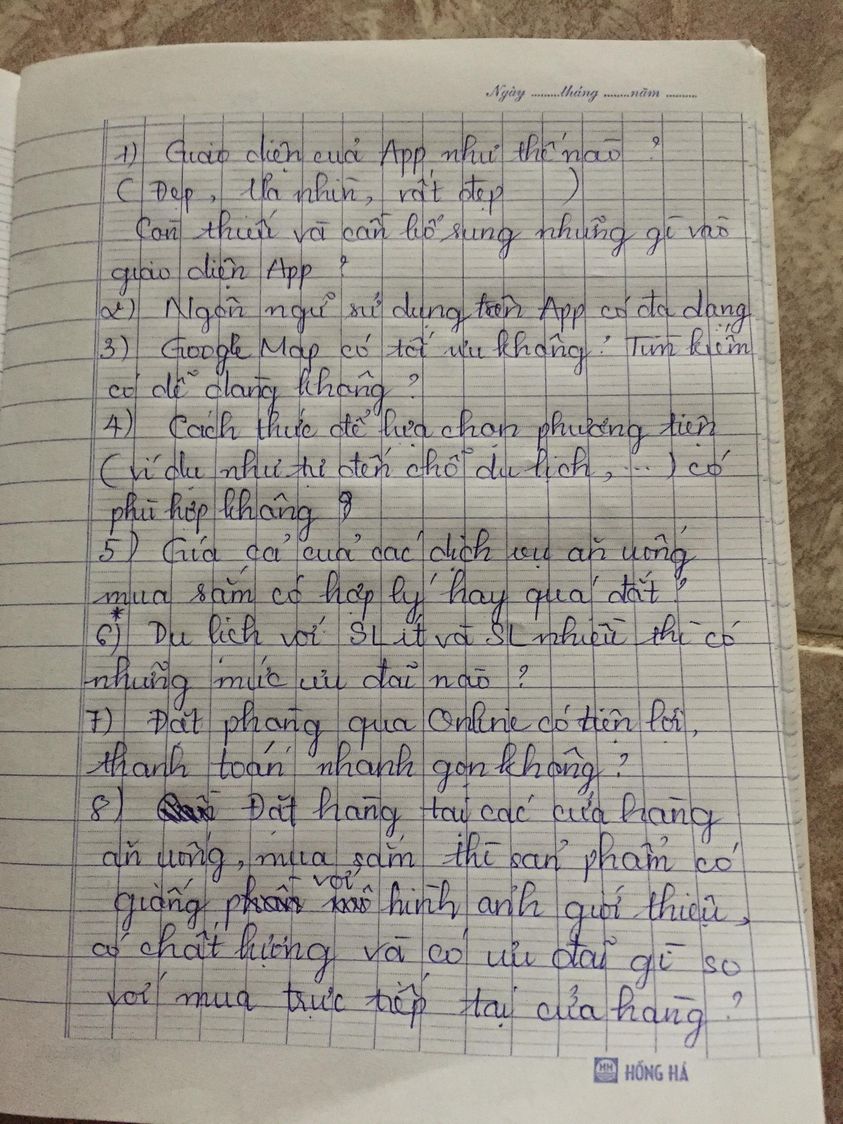 Ngày ........tháng .......năm .........
1) Giao diện của App như thế nào ?
( Đẹp, ưa nhìn, rất đẹp )
Còn thiếu và cần bổ sung những gì vào
giao diện App ?
2) Ngôn ngữ sử dụng trên App có đa dạng
3) Google Map có tối ưu không? Tìm kiếm
có dễ dàng không?
4) Cách thức để lựa chọn phương tiện
(ví dụ như tự đến chỗ du lịch, ...) có
phù hợp không ?
5) Giá cả của các dịch vụ ăn uống
mua sắm có hợp lý hay quá đắt ?
6)* Du lịch với SL ít và SL nhiều thì có
những mức ưu đãi nào ?
7) Đặt phòng qua Online có tiện lợi,
thanh toán nhanh gọn không?
8) Đặt hàng tại các cửa hàng
ăn uống, mua sắm thì sản phẩm có
giống với hình ảnh giới thiệu,
có chất lượng và có ưu đãi gì so
với mua trực tiếp tại cửa hàng ?
HỒNG HÀ